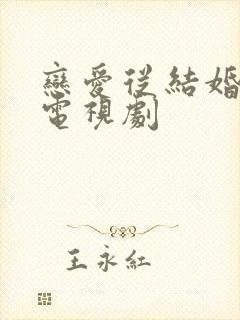 戀愛從結婚
電視劇
王永紅